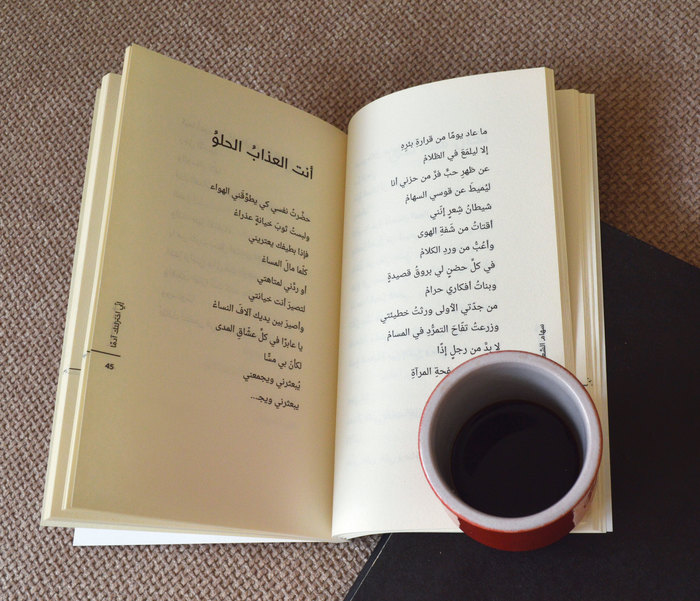 ما عاد يومًا من قرارةِ بئرِهِ
إلا ليلمَعَ في الظلامْ
عن ظهرِ حبٍّ فرَّ من حزني أنا
ليُميطَ عن قوسي السهامْ
شيطانُ شِعرٍ إنّني
أقتاتُ من شَفةِ الهوى
وأعُبُّ من وردِ الكلامْ
في كلِّ حضنٍ لي بروقُ قصيدةٍ
وبناتُ أفكاري حرامْ
من جدّتي الأولى ورثتُ خطيئتي
وزرعتُ تفّاحَ التمرُّدِ في المسامْ
لا بدَّ من رجلٍ إذًا
المرآةِ
سهام
أنت العذابُ الحلوُ
حضّرتُ نفسي كي يطوّقَني الهواء
ولبستُ ثوبَ خيانةٍ عذراءْ
فإذا بطيفك يعتريني
كلّما مالَ المساءْ
أو ردَّني لمتاهتي
لتصيرَ أنت خيانتي
وأصيرَ بين يديك آلافَ النساءْ
يا عابرًا في كلِّ عشّاقِ المدى
لكأنَ بي مسًّا
يُبعثرني ويجمعني
يبعثرني ويجـ...
اخترتك آدمًا
45